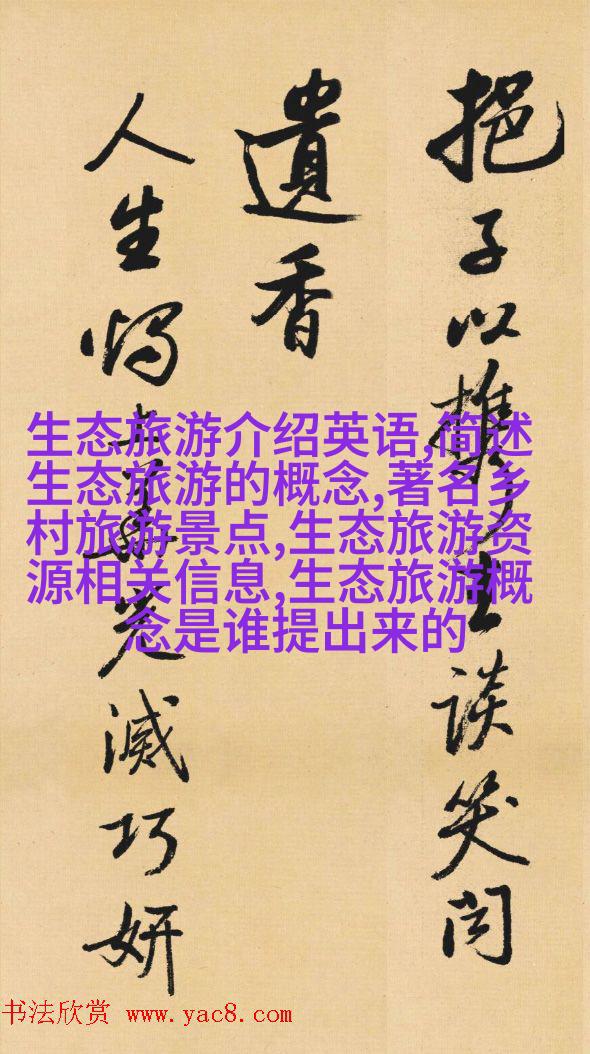 挹子以攜生談笑
遺香
人生 滅巧妍
生态旅游介绍英语,简述
生态旅游的概念,著名乡
村旅游景点,生态旅游资
源相关信息,生态旅游概
念是谁提出来的
书法欣赏 www.yac8.com